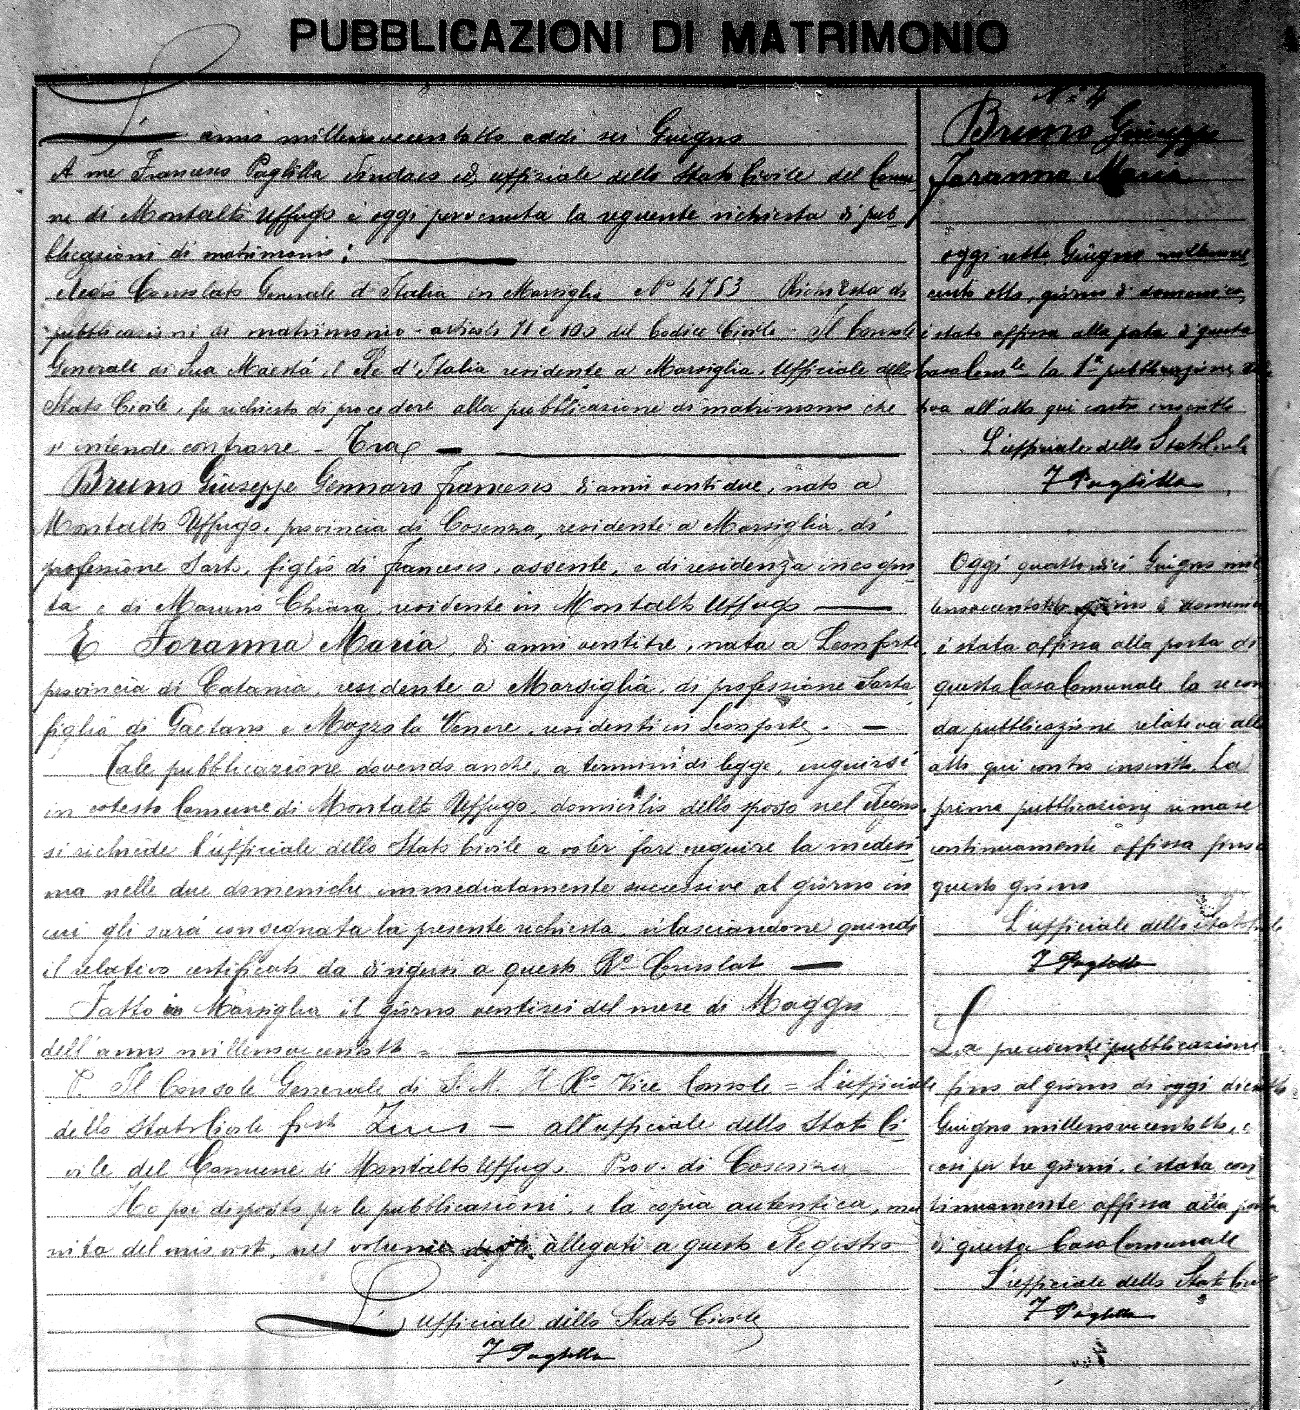 PUBBLICAZIONI DI MATRIMONIO
L'anno millenovecentotto addì sei Giugno
A me Francesco Paglilla Sindaco ed uffiziale dello Stato Civile del Comu-
ne di Montalto Uffugo è oggi pervenuta la seguente richiesta di pub-
blicazioni di matrimonio:
Regio Consolato Generale d'Italia in Marsiglia N° 4753 Richiesta di
pubblicazioni di matrimonio - articoli 71 e 100 del Codice Civile Il Console
Generale di Sua Maestà il Re d'Italia residente a Marsiglia, Ufficiale dello
Stato Civile, fu richiesto di procedere alla pubblicazione di matrimonio che
s'intende contrarre - Tra
Bruno Giuseppe Gennaro Francesco di anni ventidue, nato a
Montalto Uffugo, provincia di Cosenza, residente a Marsiglia, di
professione Sarto, figlio di Francesco, assente, e di residenza incogni-
ta e di Marano Chiara, residente in Montalto Uffugo
E Foranna Maria, di anni ventitre, nata a Leonforte
provincia di Catania, residente a Marsiglia, di professione Sarta
figlia di Gaetano e Mazzola Venere, residenti in Leonforte.
Tale pubblicazione dovendo anche, a termini di legge, eseguirsi
in cotesto Comune di Montalto Uffugo, domicilio dello sposo nel Regno,
si richiede l'ufficiale dello Stato Civile a voler fare eseguire la medesi-
ma nelle due domeniche immediatamente successive al giorno in
cui gli sarà consegnata la presente richiesta, rilasciandone quindi
il relativo certificato da dirigersi a questo R° Consolato
Fatto in Marsiglia il giorno ventisei del mese di Maggio
dell'anno millenovecentotto.
P. Il Console Generale di S. M. Il R° Vice Console = L'ufficiale
dello Stato Civile firt - all'ufficiale dello Stato Ci-
vile del Comune di Montalto Uffugo Prov. di Cosenza
Ho poi disposto per le pubblicazioni, e la copia autentica, mu
nita del mio visto, nel volume allegati a questo Registro
L'ufficiale dello Stato Civile
F Paglilla
N° 4
Bruno Giuseppe
Foranna Maria
oggi sette Giugno millenove
cento otto, giorno di domenica,
è stata affissa alla porta di questa
Casa Com.le la 1ª pubblicazione rela
tiva all'atto qui contro inscritto
L'ufficiale dello Stato Civile
F Paglilla
Oggi quattordici Giugno mil
lenovecentotto giorno di domenica
è stata affissa alla porta di
questa Casa Comunale la secon
da pubblicazione relativa allo
atto qui contro inscritto. La
prima pubblicazione rimase
continuamente affissa fino a
questo giorno
L'ufficiale dello Stato Civile
F Paglilla
La precedente pubblicazione
fino al giorno di oggi diciotto
Giugno millenovecentotto, e
così per tre giorni, è stata con
tinuamente affissa alla porta
di questa Casa Comunale
L'ufficiale dello Stato Civile
F Paglilla